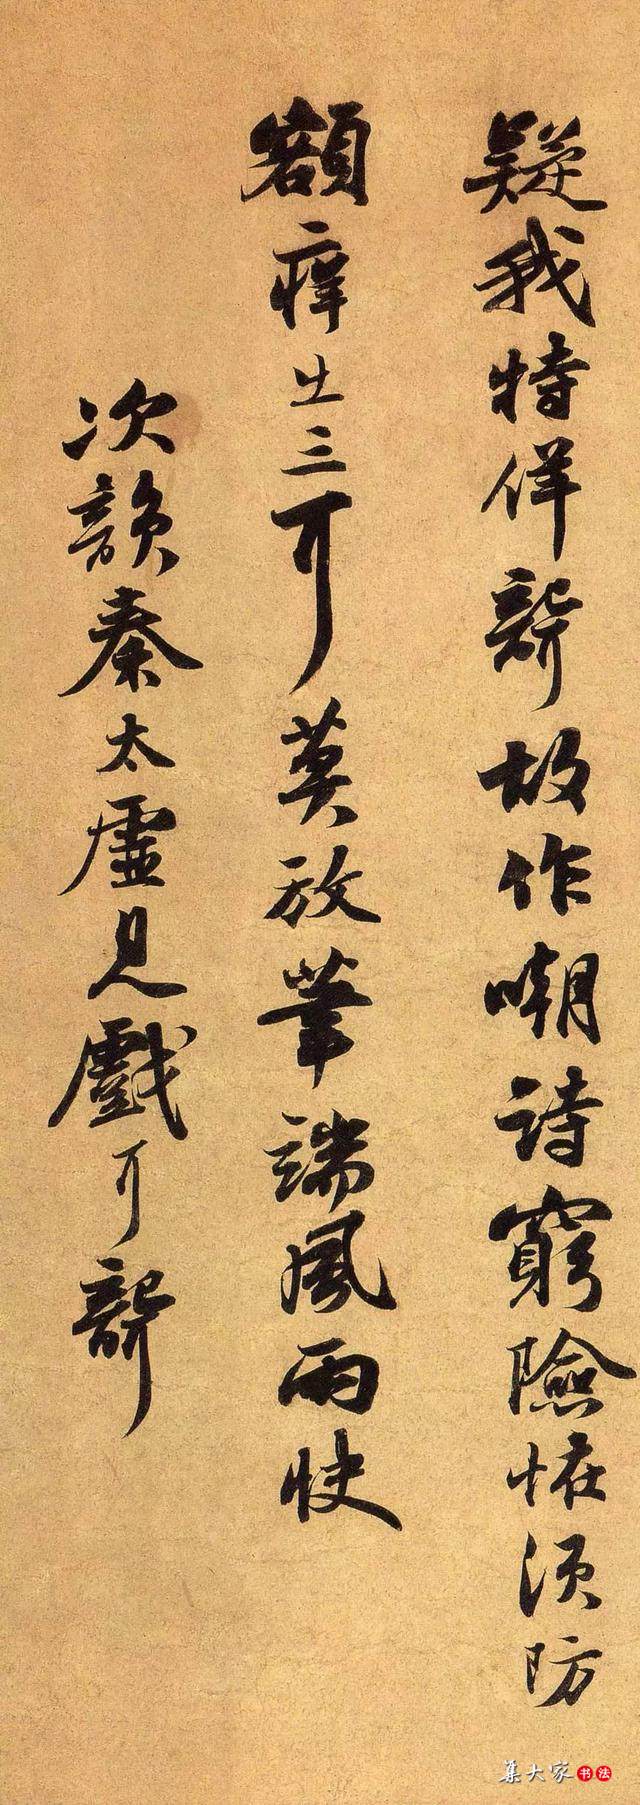 疑我特佯聾故作嘲詩窮險怪須防
額痒出三耳莫放筆端風雨快
次韻秦太虛見戲耳聾
集大家书法